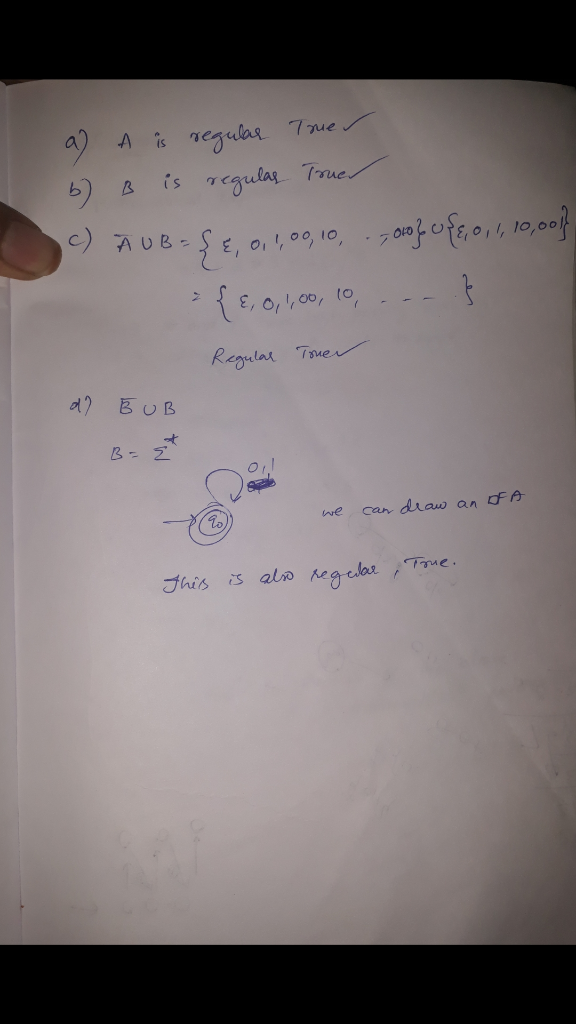 a) A is regular True ✓
b) B is regular True ✓
c) A̅ ∪ B = { ε, 0, 1, 00, 10, . . , 010} ∪ {ε, 0, 1, 10, 001}
= { ε, 0, 1, 00, 10, - - - - }
Regular True ✓
d) B̅ ∪ B
B = Σ*
0,1
q₀
we can draw an DFA
This is also regular, True.